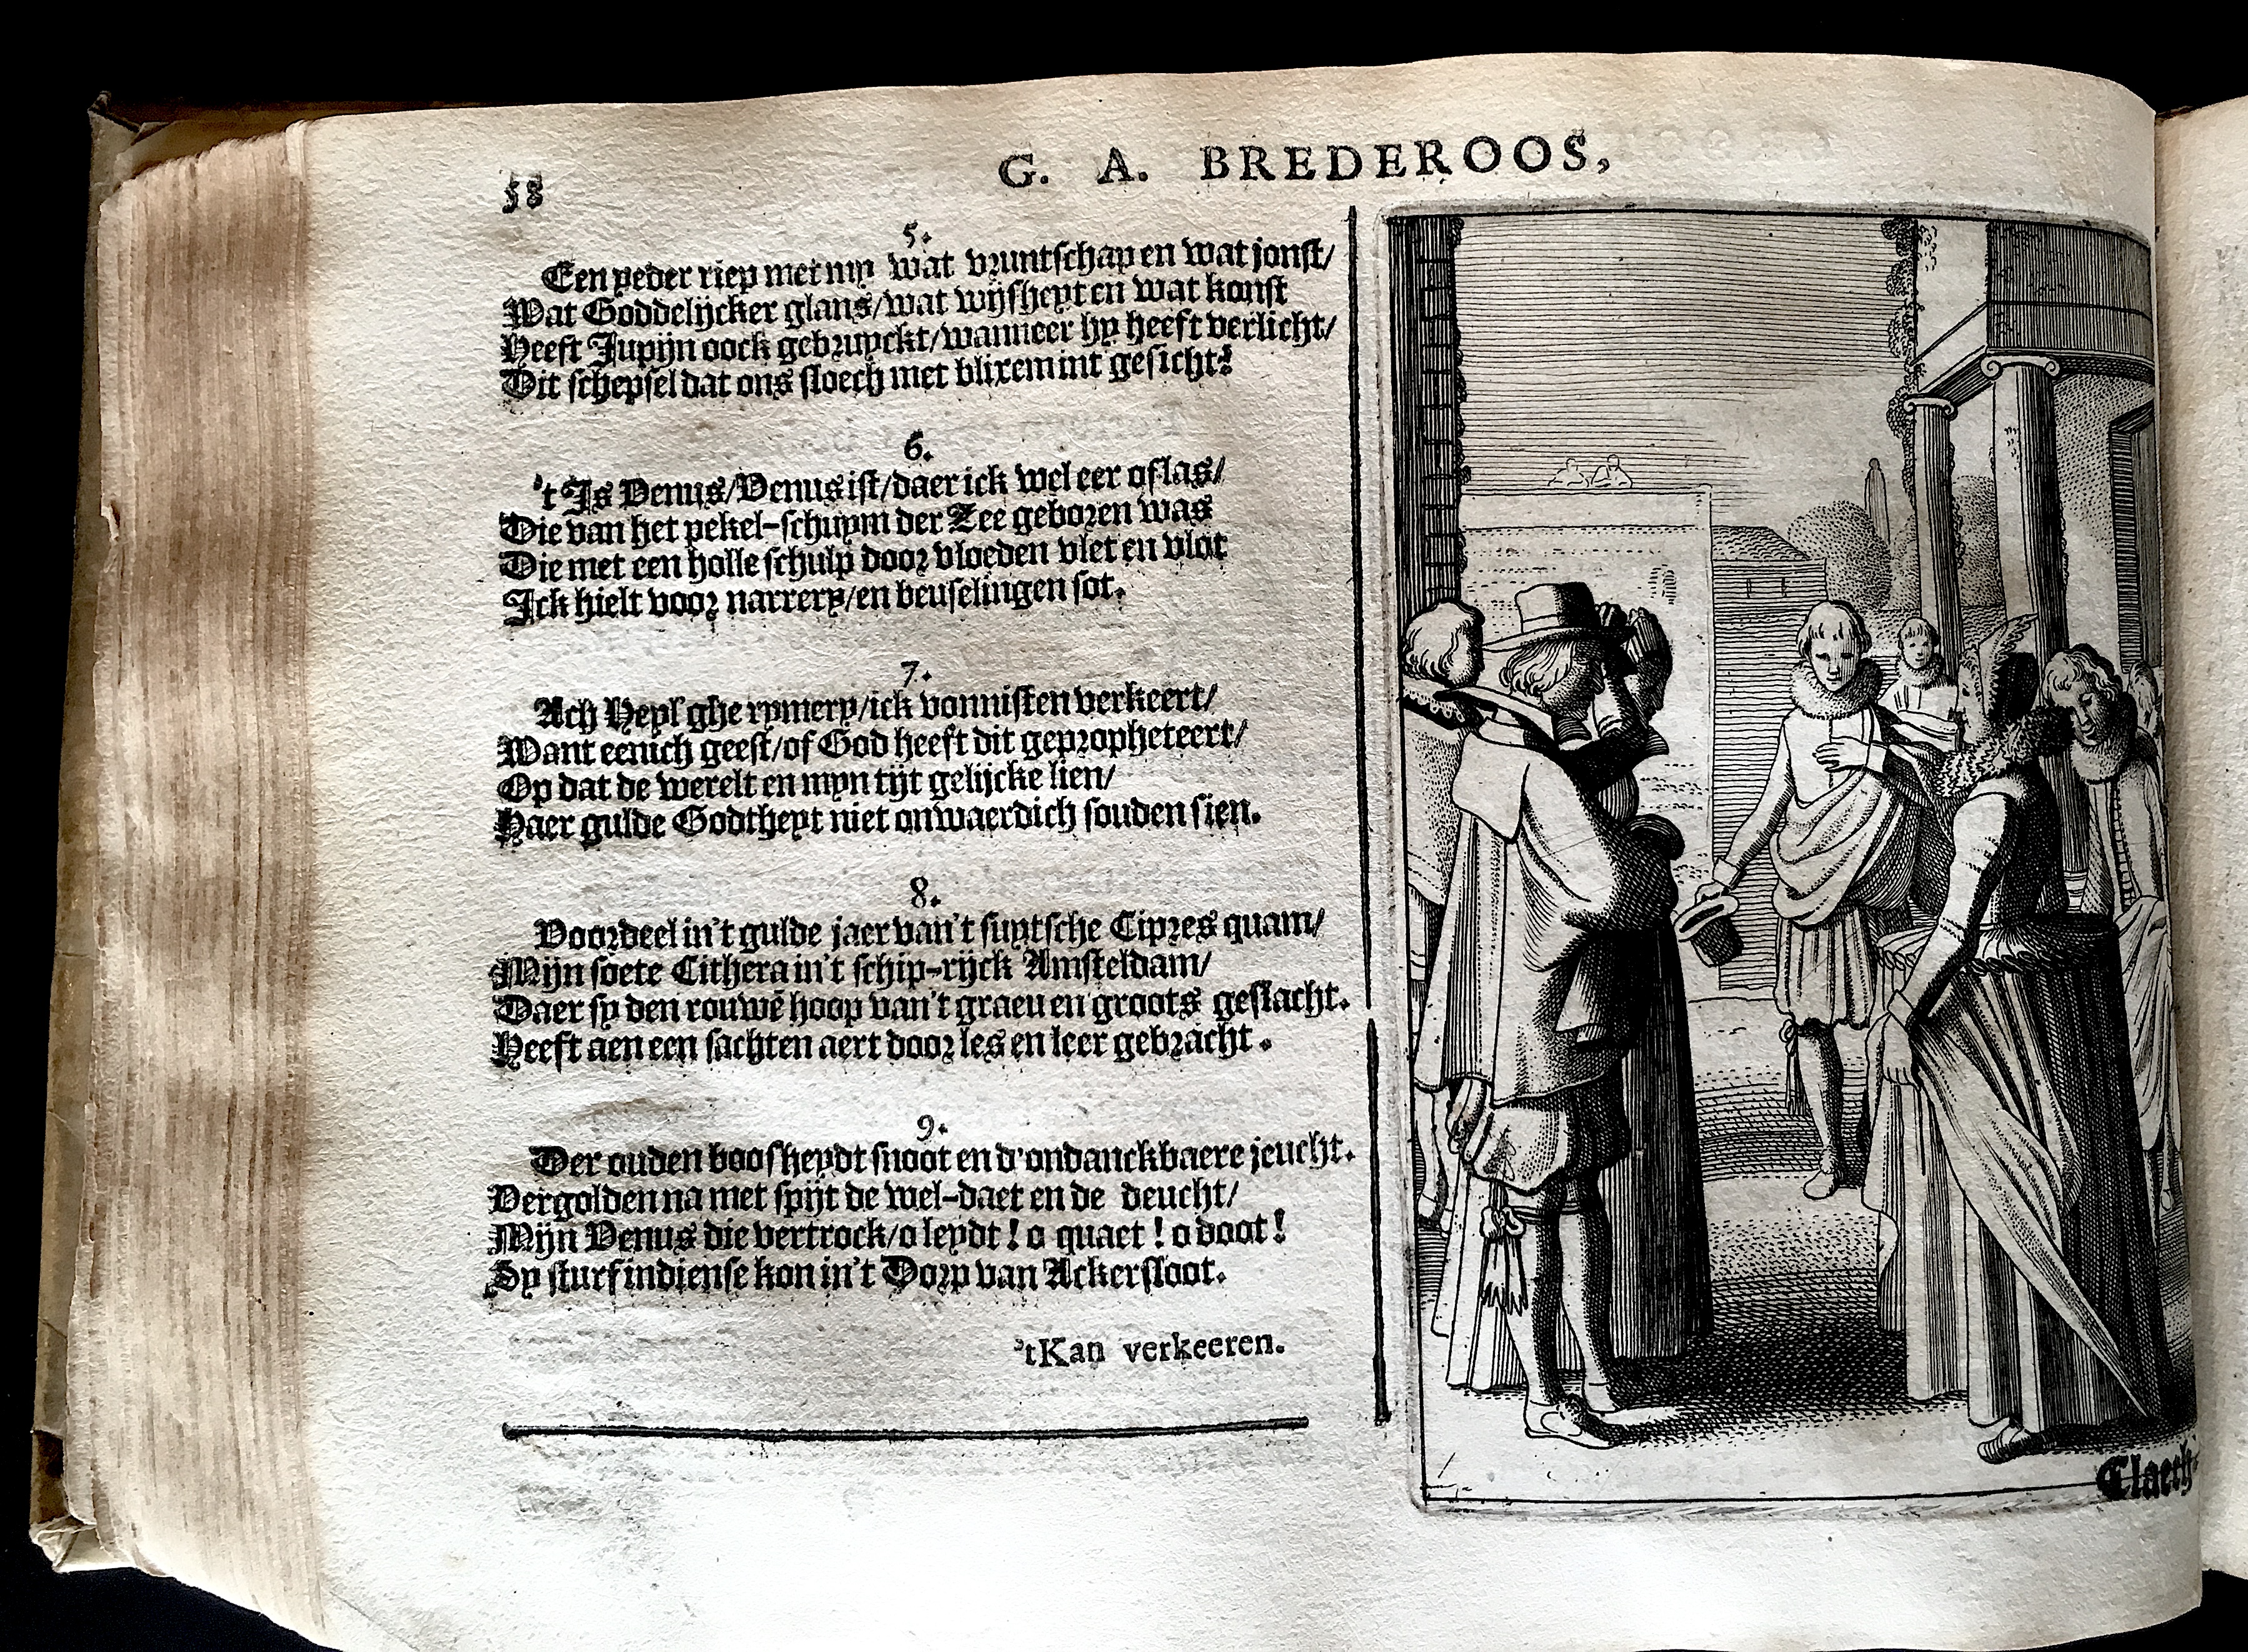 58
G. A. BREDEROOS,
5.
Een yeder riep met my wat vruntschap en wat jonst/
Wat Goddelijcker glans/wat wijsheyt en wat konst
Heeft Jupijn oock gebruyckt/wanneer hy heeft verlicht/
Dit schepsel dat ons sloech met blixem int gesicht?
6.
't Is Venus/Venus ist/daer ick wel eer af las/
Die van het pekel-schuym der Zee geboren was
Die met een holle schulp door vloeden vlet en vlot
Ick hielt voor narrery/en beuselingen sot.
7.
Ach Heyl'ghe rymery/ick vonnisten verkeert/
Want eenich geest/of God heeft dit gepropheteert/
Op dat de werelt en myn tijt gelijcke lien/
Haer gulde Godtheyt niet onwaerdich souden sien.
8.
Voordeel in't gulde jaer van't suytsche Cipres quam/
Mijn soete Cithera in't schip-rijck Amsteldam/
Daer sy den rouwē hoop van't graeu en groots geslacht.
Heeft aen een sachten aert door les en leer gebracht.
9.
Der ouden boosheydt snoot en d'ondanckbaere jeucht.
Vergolden na met spijt de wel-daet en de deucht/
Mijn Venus die vertrock/o leydt! o quaet! o doot!
Sy sturf indiense kon in't Dorp van Ackersloot.
'tKan verkeeren.
Claeth